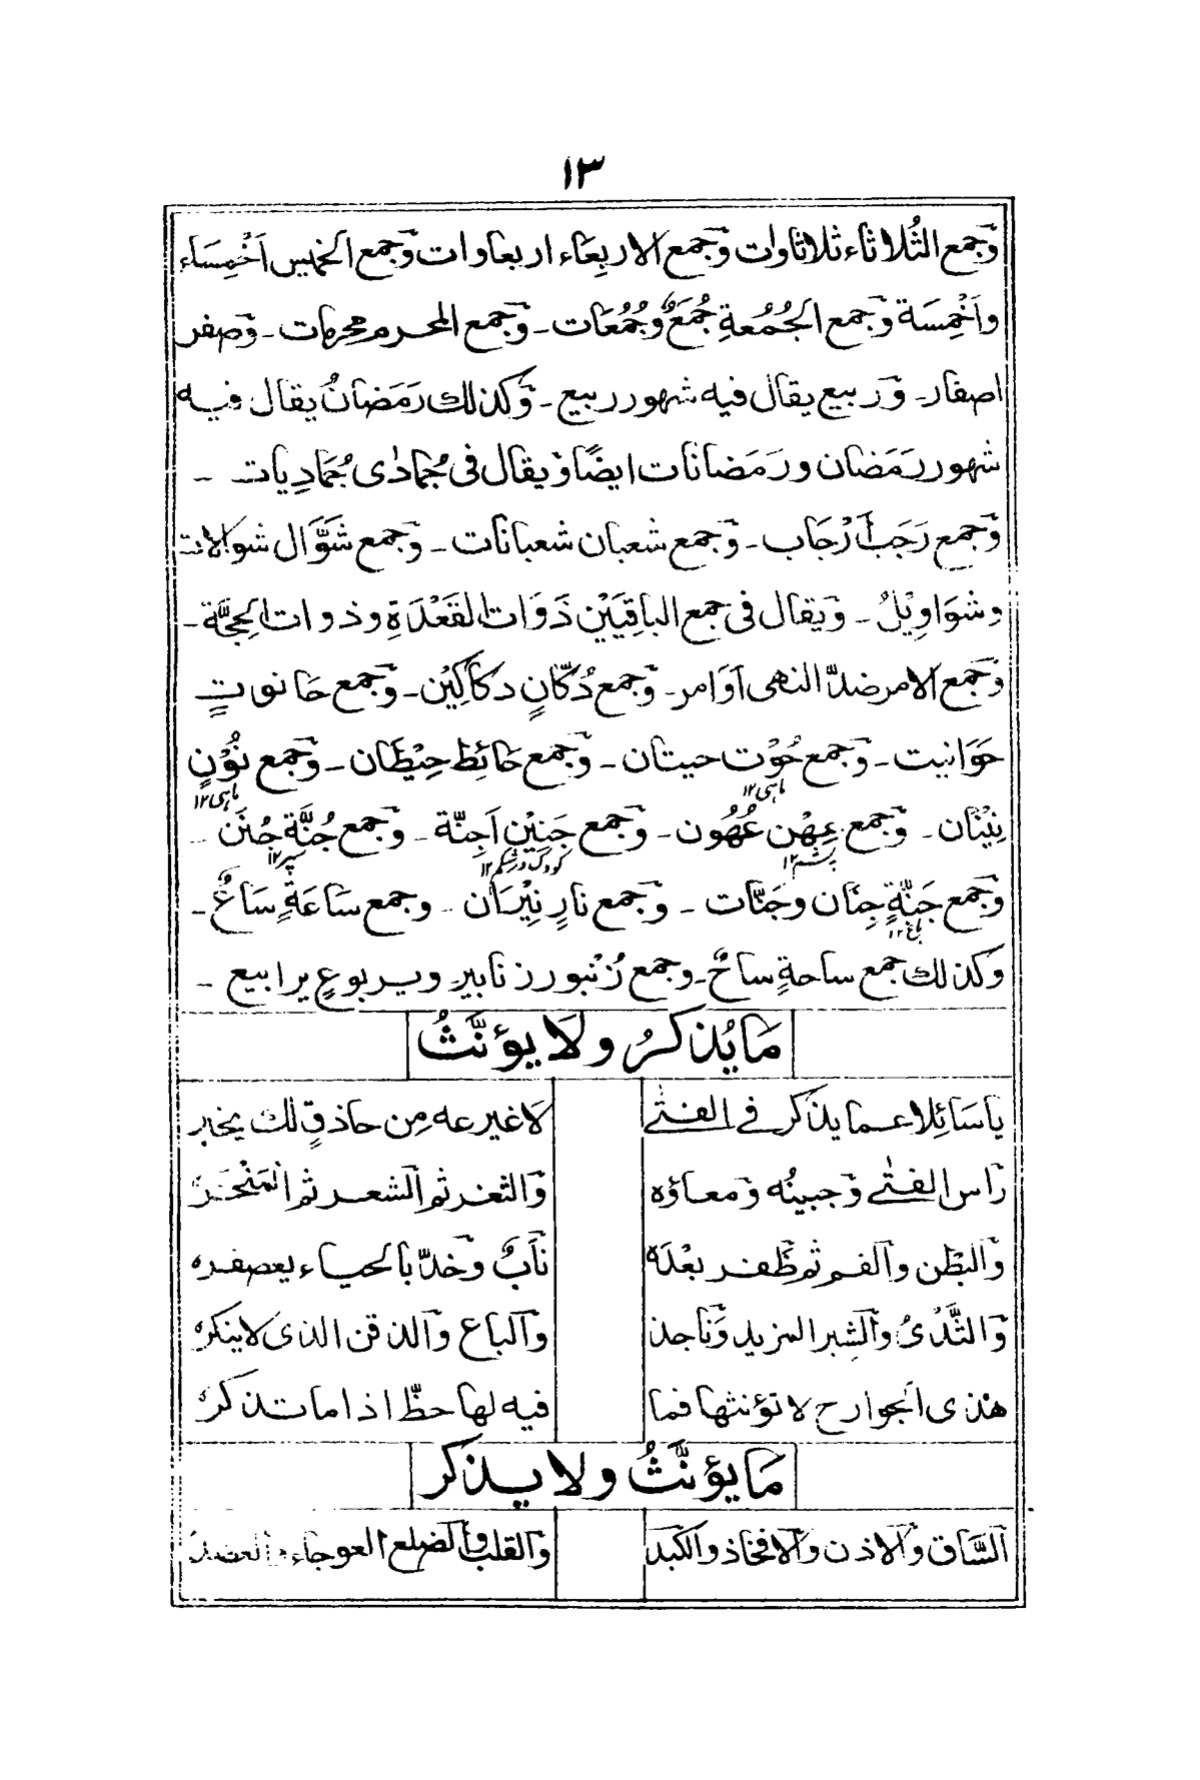 ١٣
وَجمع الثُلاثاء ثلاثاوات وَجمع الاربعَاء اربعاوات وَجمع الخميس اَخْمِسَاء
واَخْمِسَة وَجمع الجُمُعةِ جُمَعٌ وجُمُعَات ـ وَجمع المحرم محرمات ـ وَصفر
اصفار ـ وَربيع يقال فيه شهور ربيع ـ وَكذلك رَمَضانُ يقال فيه
شهور رَمَضان ورَمَضانات ايضًا وَيقال فى جُمادٰى جُمَادِيات ـ
وَجمع رَجَب اَرْجَاب ـ وَجمع شعبان شعبانَات ـ وَجمع شَوَّال شوالات
وشوَاوِيْلُ ـ وَيقال فى جمع الباقِيَيْن ذَوَات القَعْدَةِ وذوات الحِجَّة ـ
وَجمع الامر ضدّ النهى اَوَامر ـ وَجمع دُكّانٍ دكاكِيْن ـ وَجمع حَانوتٍ
حَوَانيت ـ وَجمع حُوْت حيتان ـ وَجمع حَائط حِيْطَان ـ وَجمع نُوْنٍ
ماہی ١٢
ماہی ١٢
نِيْنَان ـ وَجمع عِهْن عُهُون ـ وَجمع جَنِيْنٍ اَجِنّة ـ وَجمع جُنَّة جُنَن ـ
پشم ١٢
کودک در شکم ١٢
سپر ١٢
وَجمع جَنّةٍ جِنَان وجَنّات ـ وَجمع نارٍ نِيْرَان ـ وجمع سَاعَةٍ سَاعٌ ـ
باغ ١٢
وكذلك جمع ساحةٍ ساحٌ ـ وجمع زُنْبور زنابير ويربوعٍ يرابيع ـ
مَا يُذكرُ ولَا يؤنَّثُ
يا سَائِلا عما يذكر فے الفتٰے لَا غير عه مِن حاذقٍ لك يخبر
رَاس الفتٰے وَجبينُه وَمعاؤه وَالثغر ثم الشعر ثم المَنْخَر
وَالبَطْن وَالفم ثم ظُفر بعْدَه نَابٌ وَخدّ بالحياء يعصفره
وَالثَّدْىُ وَالشِبر المزيد وَنَاجذ وَالباع وَالذقن الذى لا ينكره
هٰذى الجوارح لا تؤنثها فما فيه لها حظّ اذا ما تذكر
مَا يؤنَّثُ ولا يذكر
السَّاق وَالاذن وَالافخاذ والكبد وَالقلب وَالضلع العوجاء والعضد